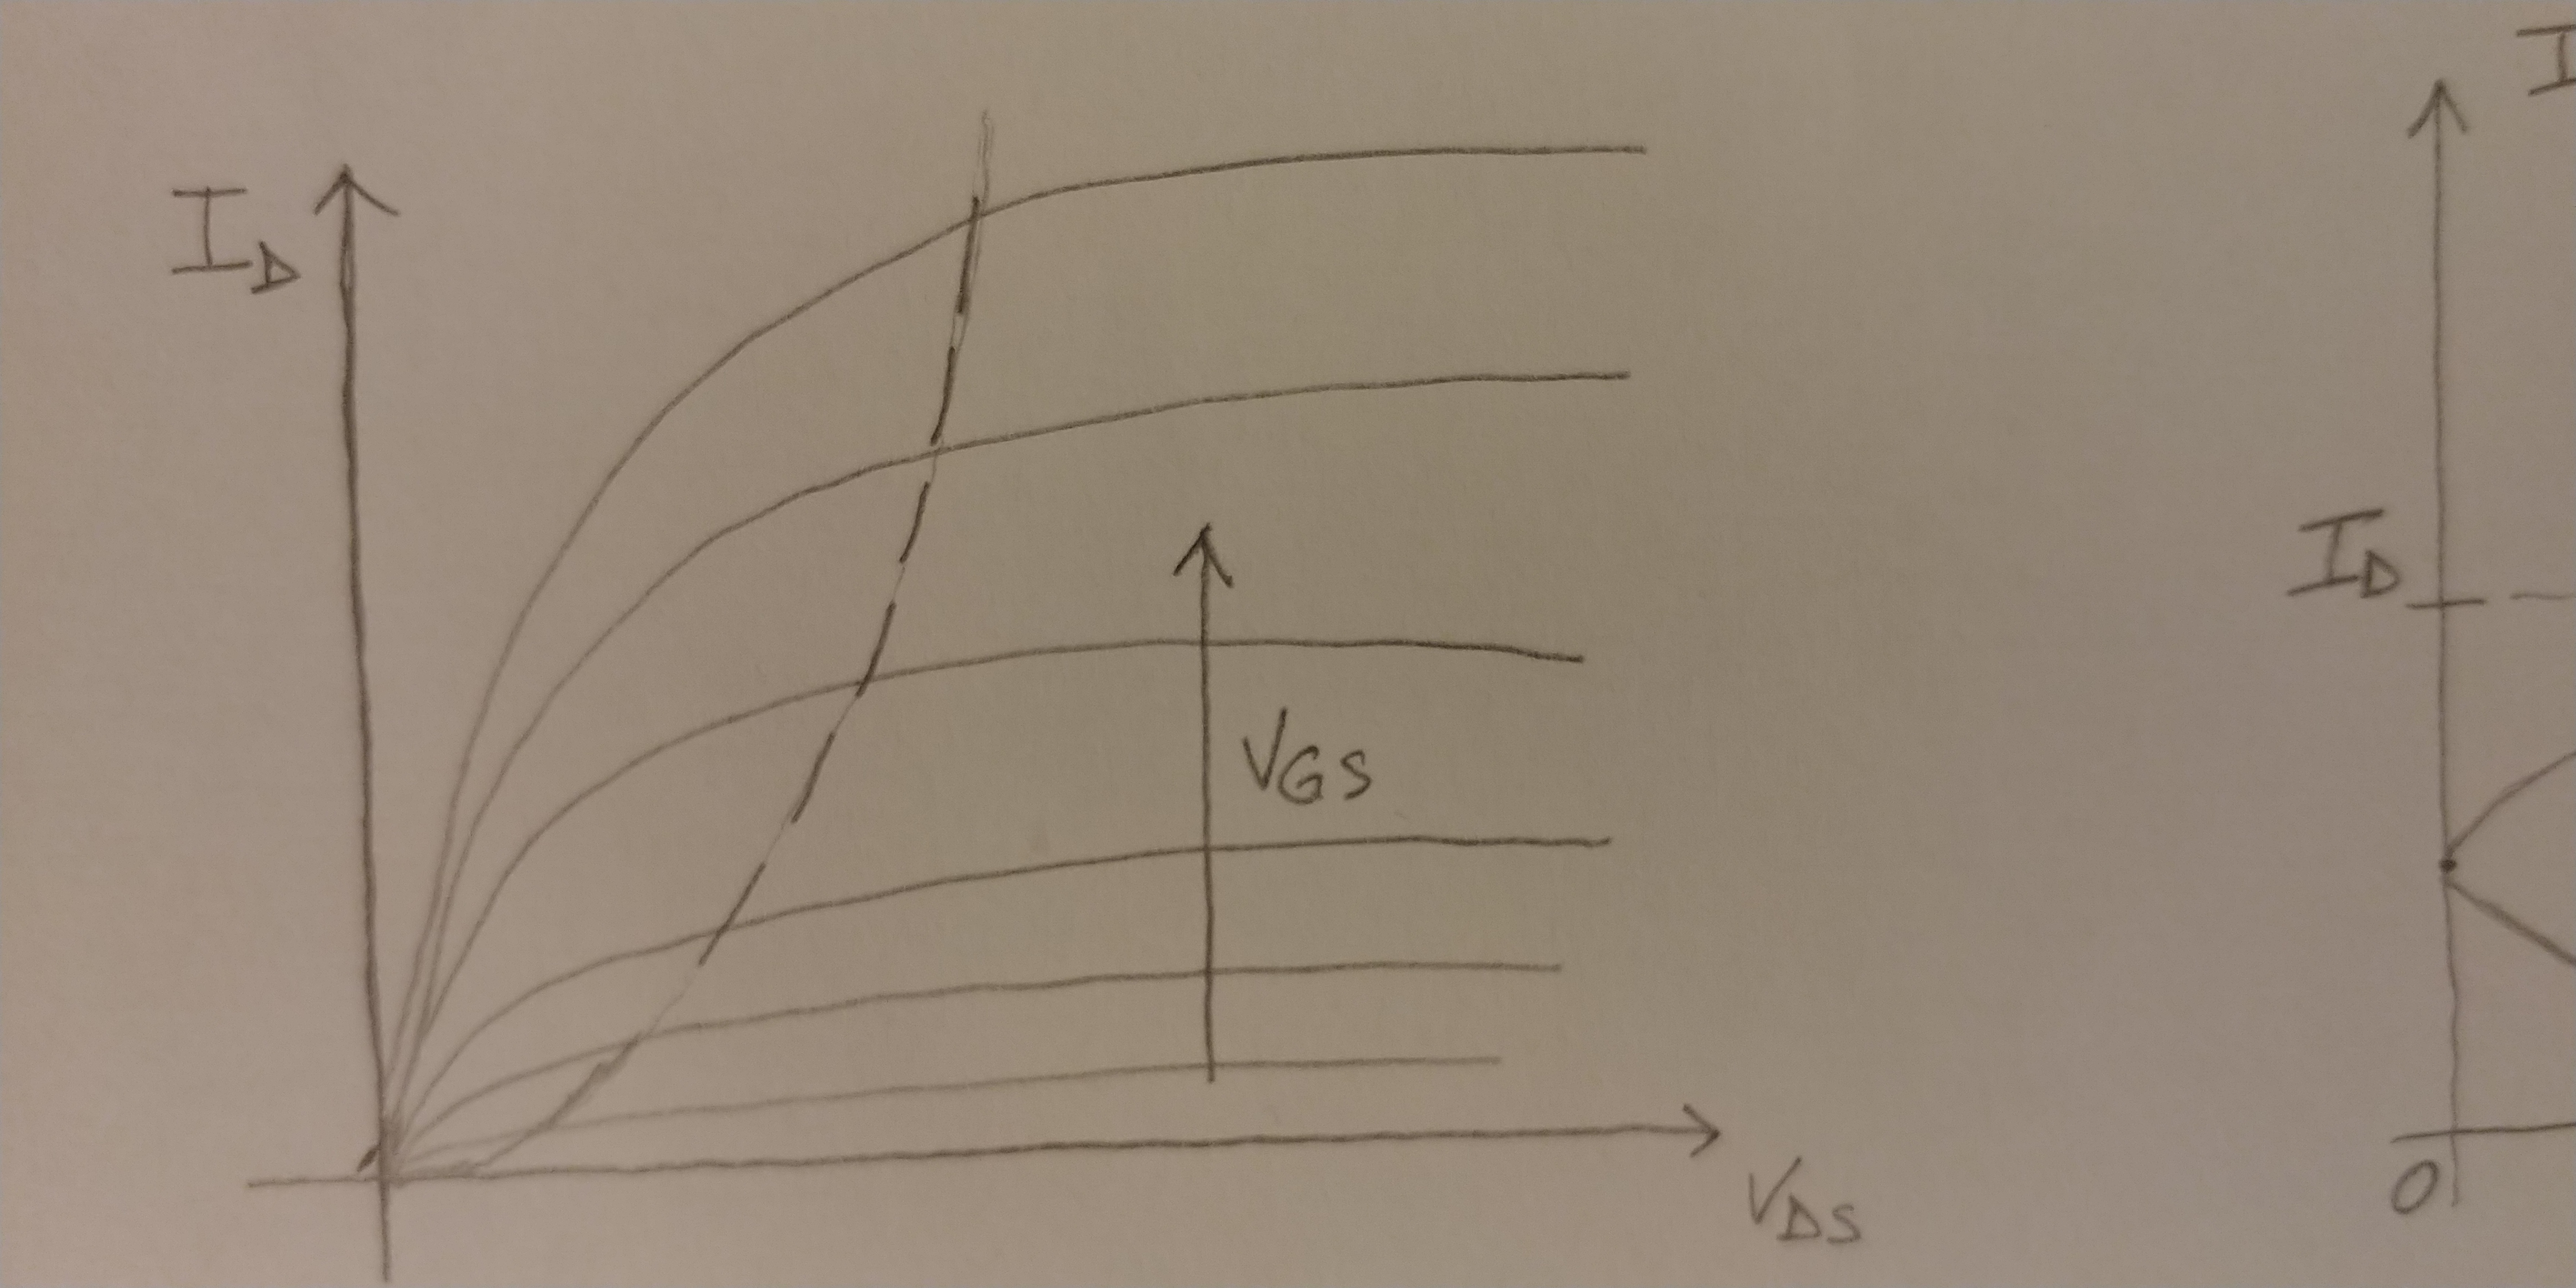 I_D
V_GS
V_DS
I
I_D
0